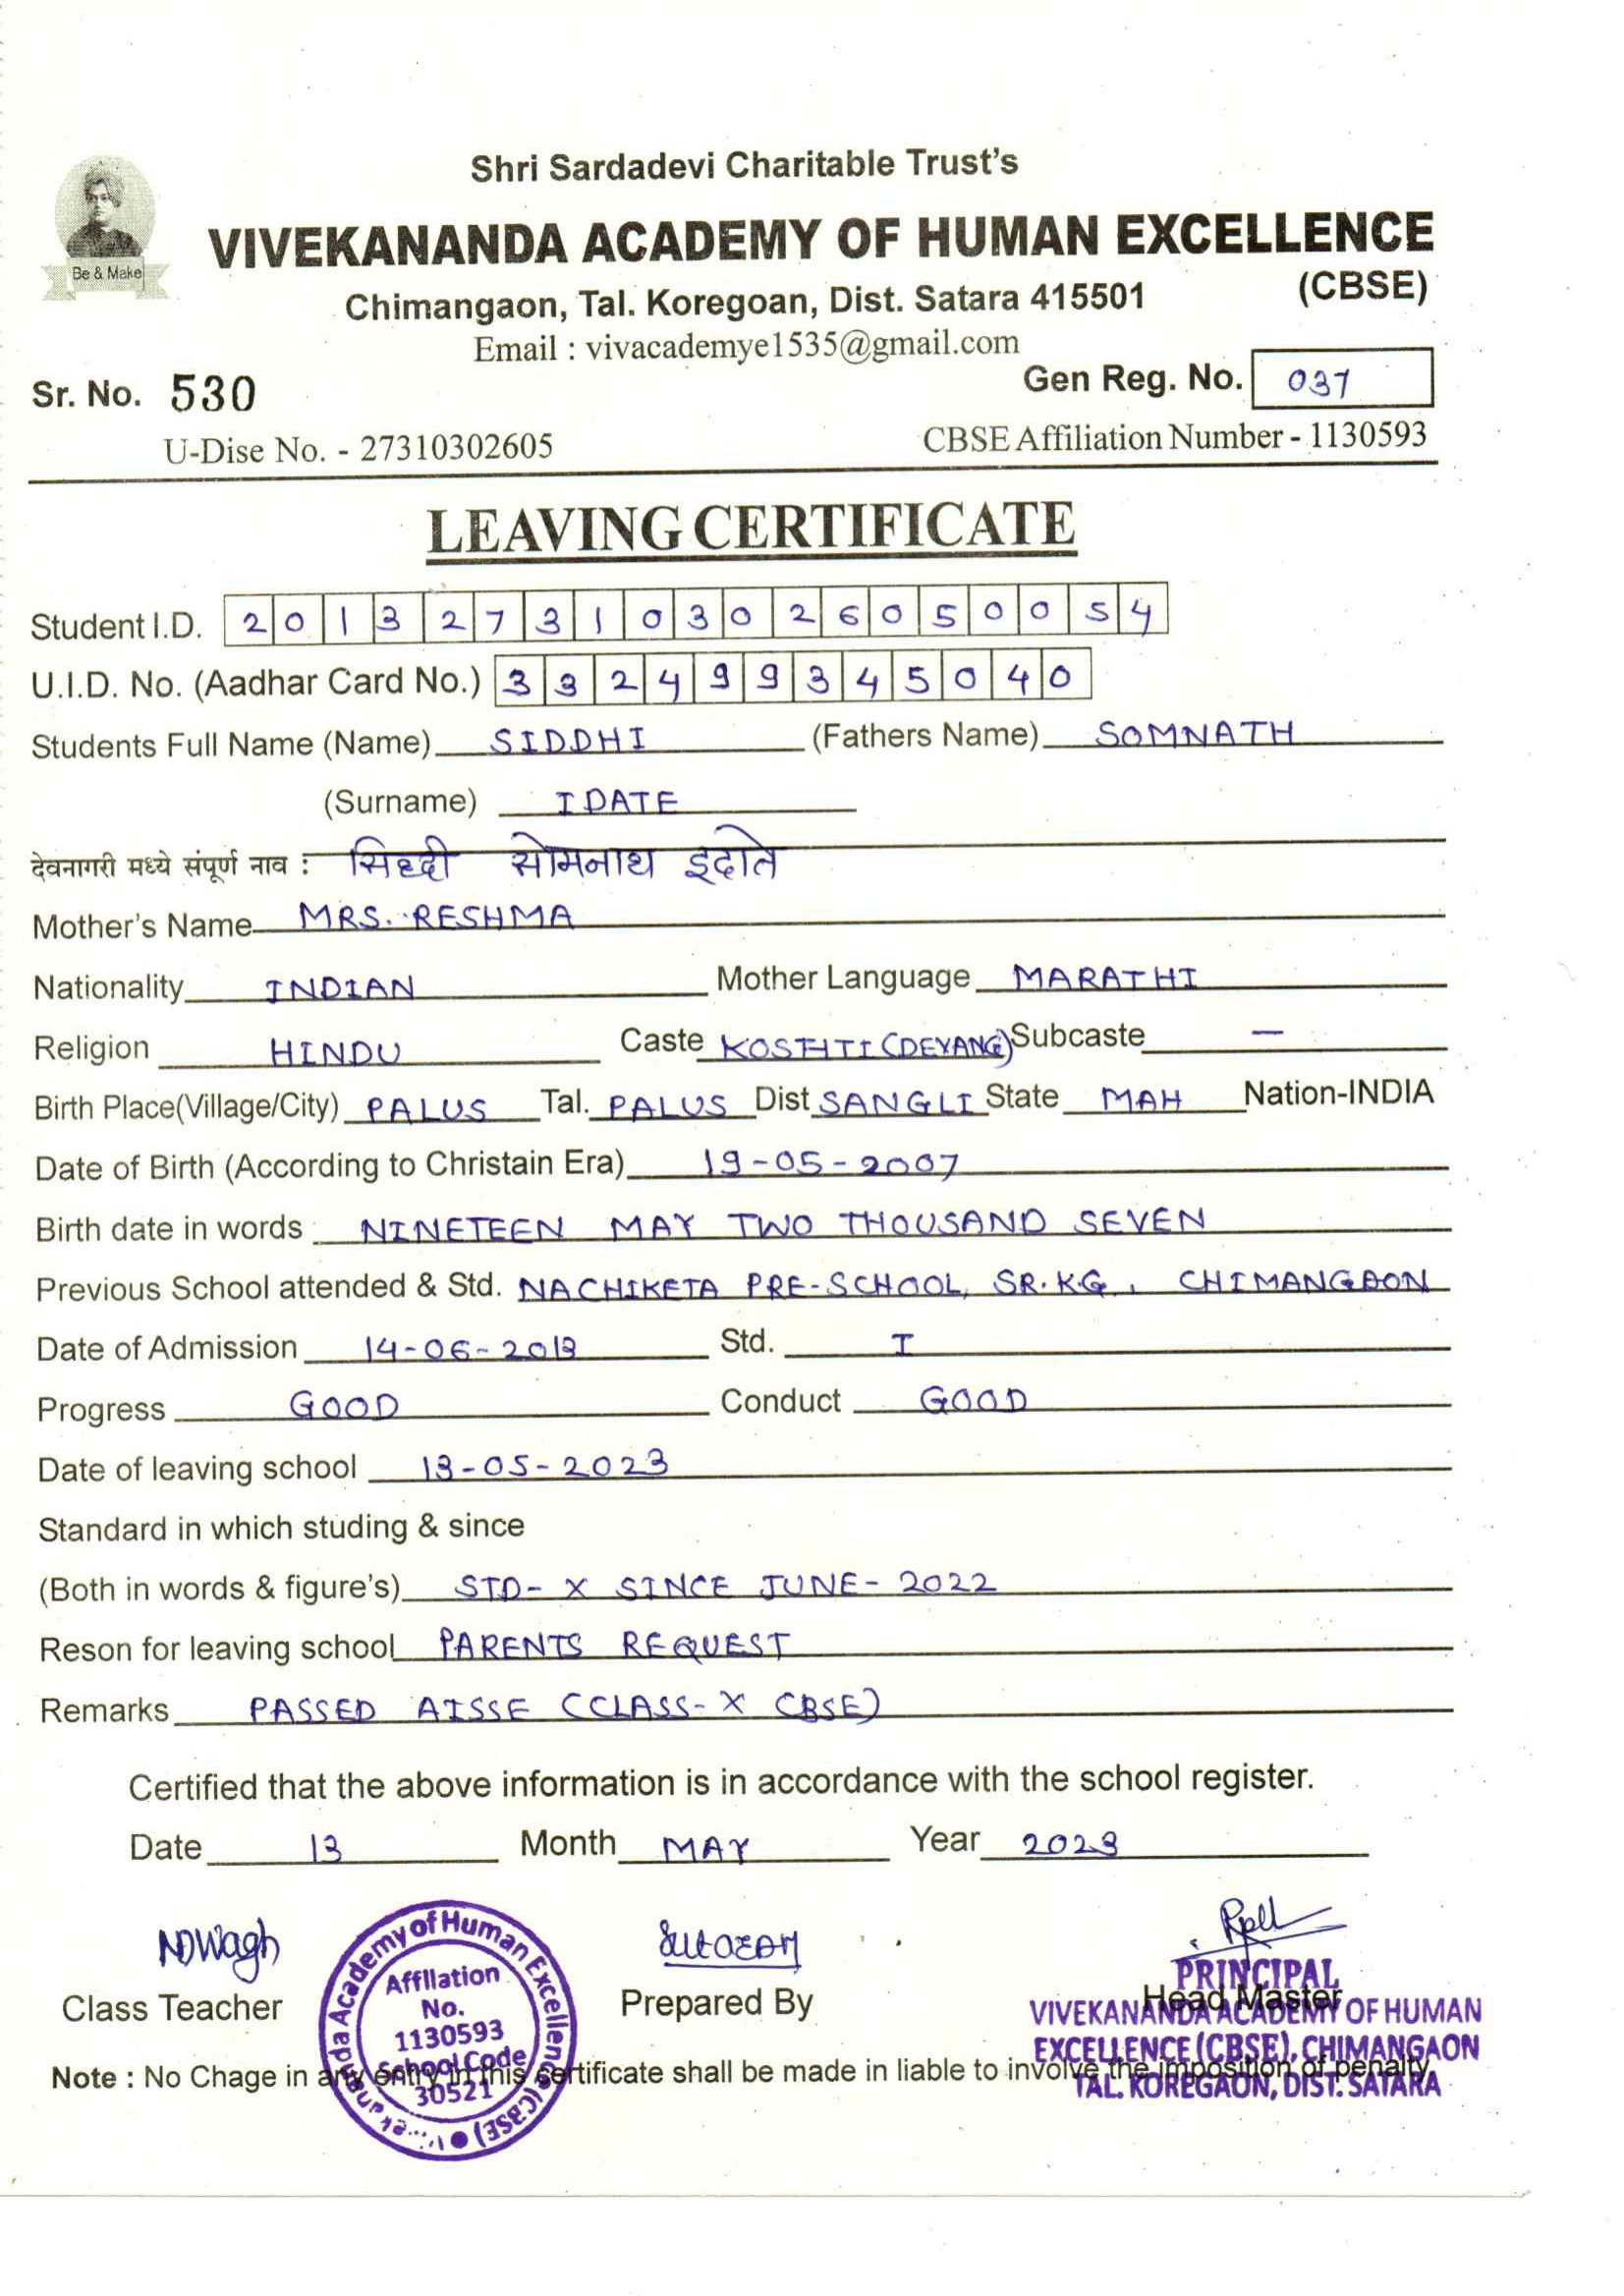 Shri Sardadevi Charitable Trust's
Be & Make
VIVEKANANDA ACADEMY OF HUMAN EXCELLENCE
(CBSE)
Chimangaon, Tal. Koregoan, Dist. Satara 415501
Email : vivacademye1535@gmail.com
Sr. No. 530 Gen Reg. No. 037
U-Dise No. - 27310302605 CBSE Affiliation Number - 1130593
LEAVING CERTIFICATE
Student I.D. 2013273103026050054
U.I.D. No. (Aadhar Card No.) 332499345040
Students Full Name (Name) SIDDHI (Fathers Name) SOMNATH
(Surname) IDATE
देवनागरी मध्ये संपूर्ण नाव : सिध्दी सोमनाथ इदाते
Mother's Name MRS. RESHMA
Nationality INDIAN Mother Language MARATHI
Religion HINDU Caste KOSHTI (DEVANG) Subcaste —
Birth Place(Village/City) PALUS Tal. PALUS Dist SANGLI State MAH Nation-INDIA
Date of Birth (According to Christain Era) 19-05-2007
Birth date in words NINETEEN MAY TWO THOUSAND SEVEN
Previous School attended & Std. NACHIKETA PRE-SCHOOL, SR.K.G, CHIMANGAON
Date of Admission 14-06-2013 Std. I
Progress GOOD Conduct GOOD
Date of leaving school 13-05-2023
Standard in which studing & since
(Both in words & figure's) STD- X SINCE JUNE- 2022
Reson for leaving school PARENTS REQUEST
Remarks PASSED AISSE (CLASS- X CBSE)
Certified that the above information is in accordance with the school register.
Date 13 Month MAY Year 2023
NDWagh
Class Teacher Prepared By Head Master
Affilation
No.
1130593
School Code
30521
Academy of Human Excellence (CBSE)
PRINCIPAL
VIVEKANANDA ACADEMY OF HUMAN
EXCELLENCE (CBSE), CHIMANGAON
TAL. KOREGAON, DIST. SATARA
Note : No Chage in any entry in this certificate shall be made in liable to involve the imposition of penalty.